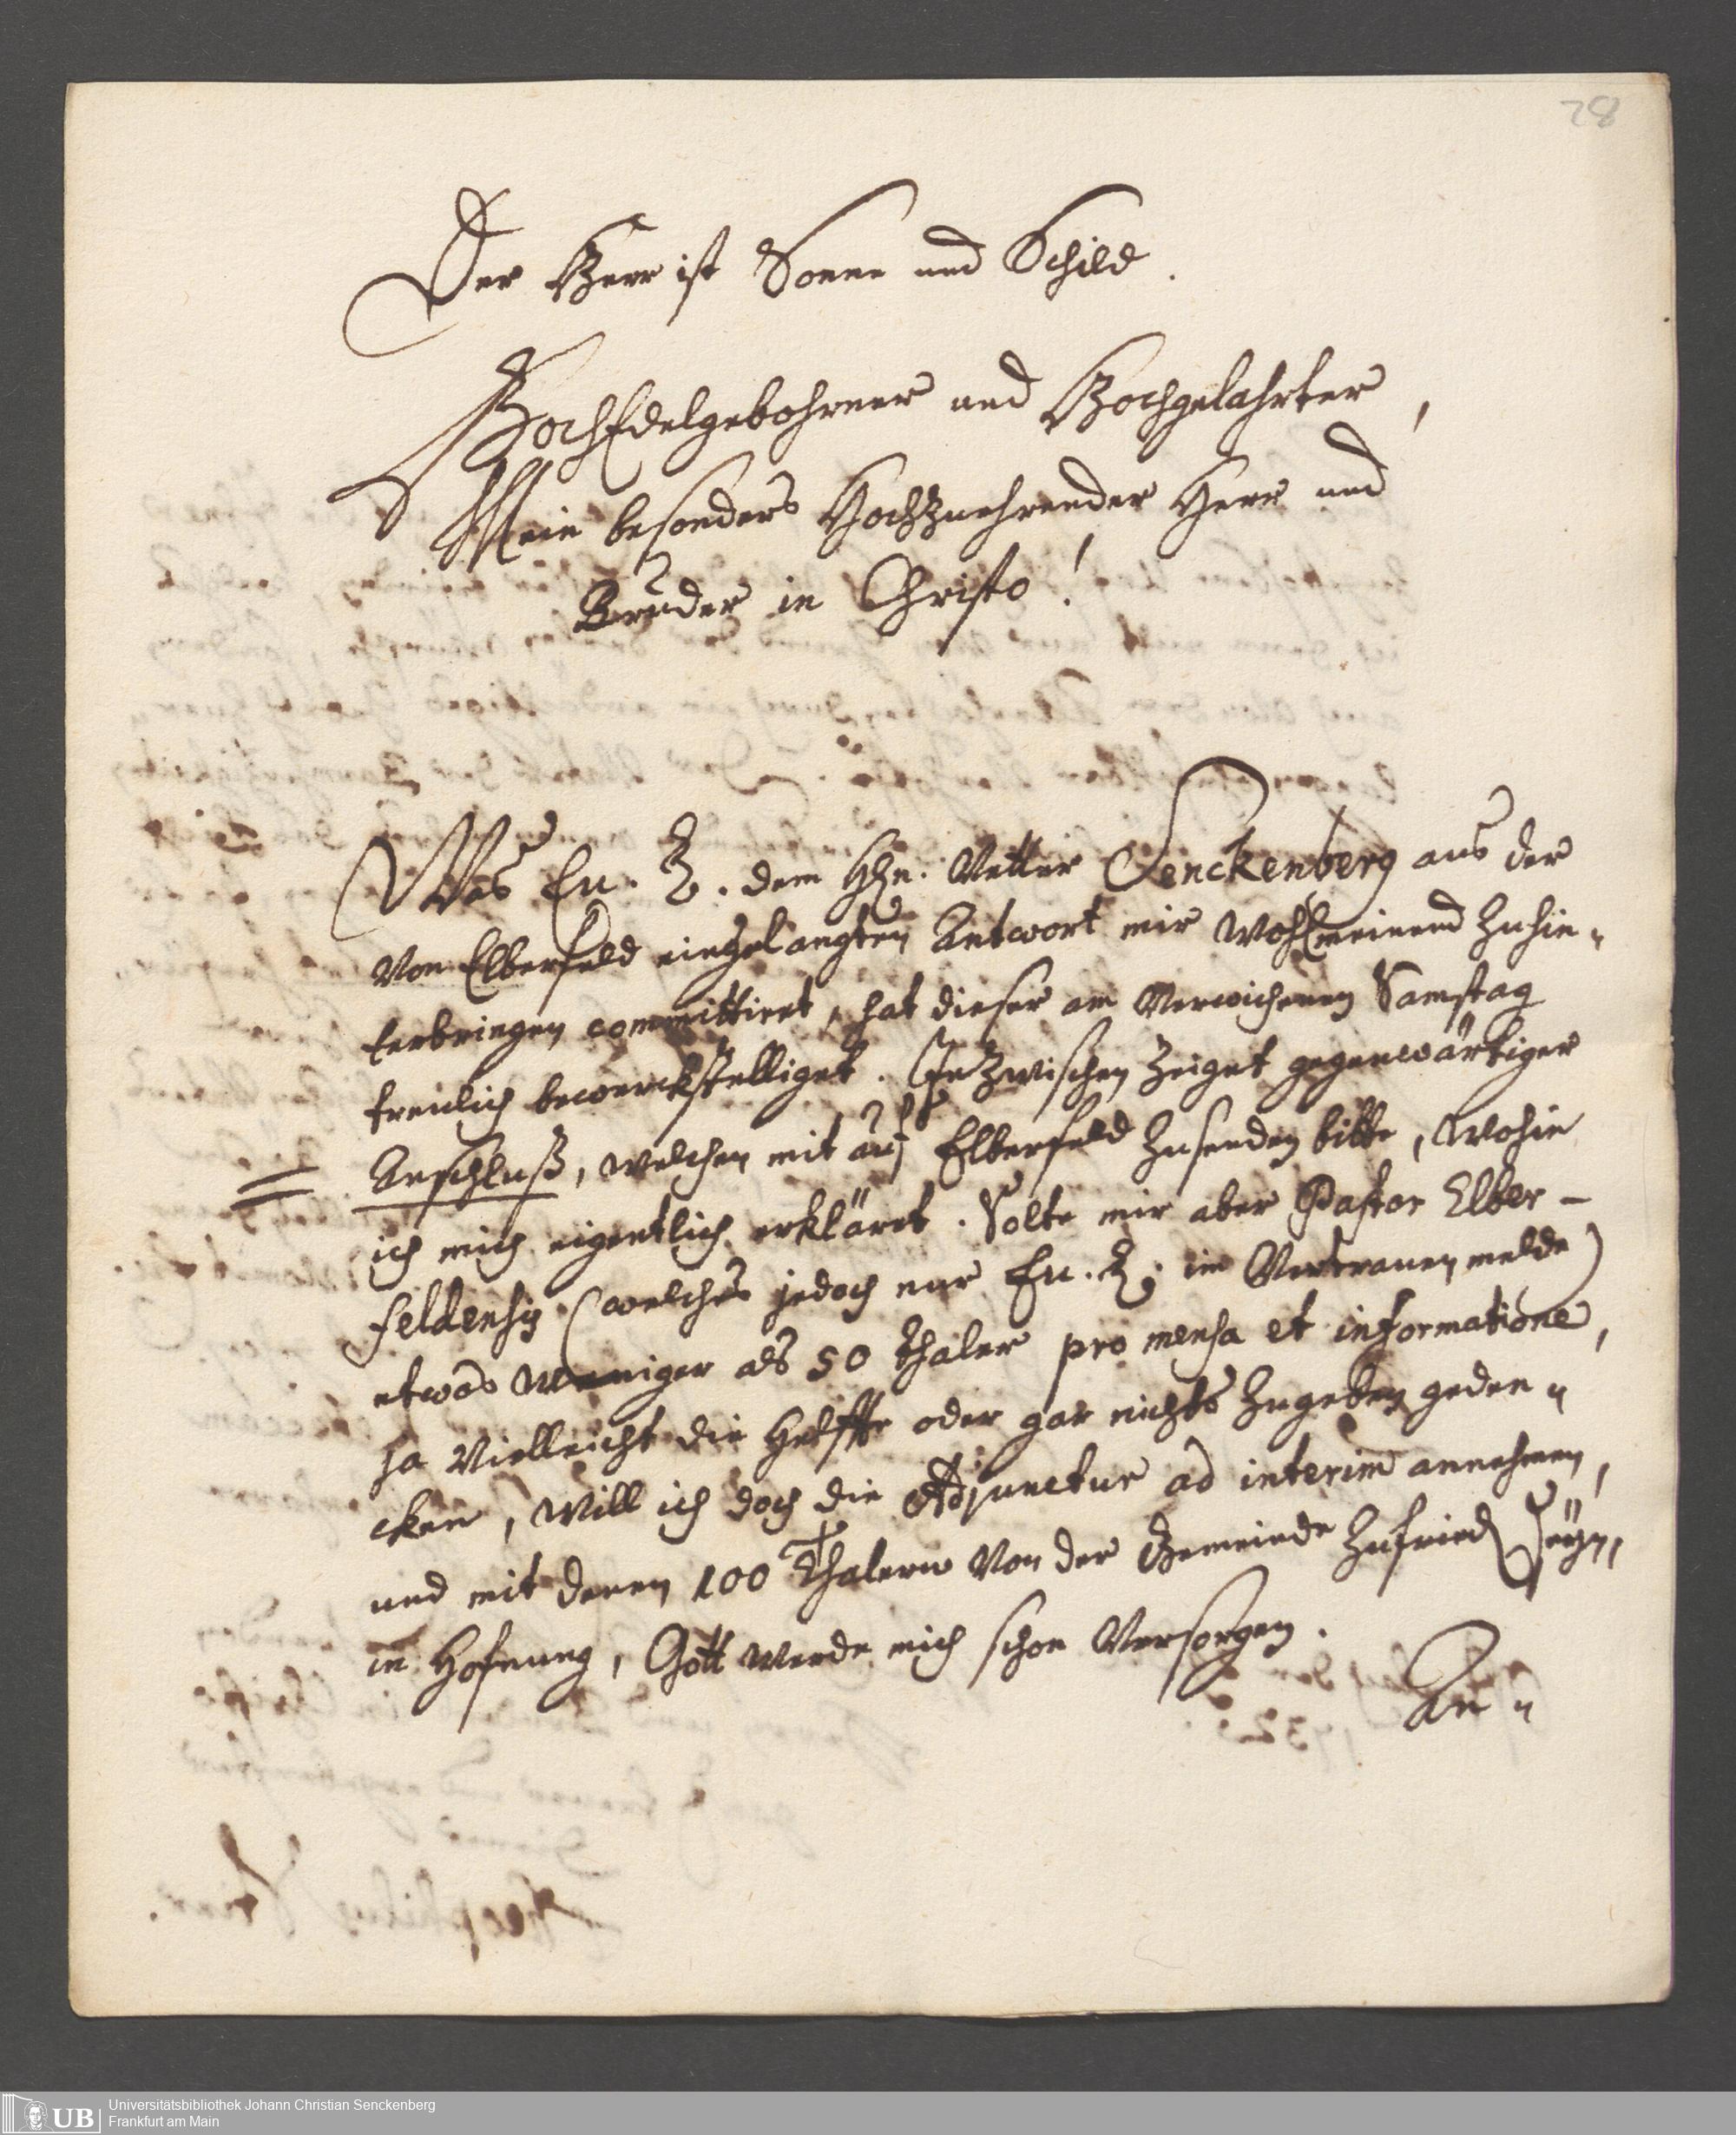 28
Der Herr ist Sonne und Schild.
HochEdelgebohrner und Hochgelahrter,
Mein besonders Hochzuehrender Herr und
Bruder in Christo!
Was Eu. H. dem Hhn. Vetter Senckenberg aus der
von Elberfeld eingelangten Antwort mir wohlmeinend zuhin-
terbringen committiret, hat dieser am verwichenen Samstag
treulich bewerckstelliget. Inzwischen zeiget gegenwärtiger
Anschluß, welchen mit auf Elberfeld zusenden bitte, wohin
ich mich eigentlich erkläret. Solte mir aber Pastor Elber-
feldensis (welches jedoch nur Eu. H. im Vertrauen melde)
etwas weniger als 50 Thaler pro mensa et informatione,
ja vielleicht die Helffte oder gar nichts zugeben geden-
cken, will ich doch die Adjunctur ad interim annehmen,
und mit denen 100 Thalern von der Gemeinde zufrieden seÿn,
in Hofnung, Gott werde mich schon versorgen.
An-
UB
Universitätsbibliothek Johann Christian Senckenberg
Frankfurt am Main